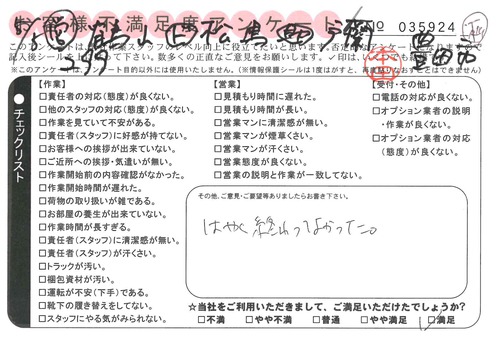 お客様不満足度アンケート
No 035924
このアンケートは、
作業スタッフのレベル向上に役立てたいと思います。
記入後シールを上にして下さい。数多くの正直なご意見をお願いします。
※このアンケートは、
目的以外には使用いたしません。(※情報保護シールは1度はがすと、
豊田市
チェックリスト
【作業】
□責任者の対応(態度)が良くない。
□他のスタッフの対応(態度)が良くない。
□作業を見ていて不安がある。
□責任者(スタッフ)に好感が持てない。
□お客様への挨拶が出来ていない。
□ご近所への挨拶・気遣いが無い。
□作業開始前の内容確認がなかった。
□作業開始時間が遅れた。
□荷物の取り扱いが雑である。
□お部屋の養生が出来ていない。
□作業時間が長すぎる。
□責任者(スタッフ)に清潔感が無い。
□責任者(スタッフ)が汗くさい。
□トラックが汚い。
□梱包資材が汚い。
□運転が不安(下手)である。
□靴下の履き替えをしてない。
□スタッフにやる気がみられない。
【営業】
□見積もり時間に遅れた。
□見積もり時間が長い。
□営業マンに清潔感が無い。
□営業マンが煙草くさい。
□営業マンが汗くさい。
□営業態度が良くない。
□営業の説明と作業が一致してない。
【受付・その他】
□電話の対応が良くない。
□オプション業者の説明
・作業が良くない。
□オプション業者の対応
(態度)が良くない。
その他、ご意見・ご要望等ありましたらお書き下さい。
はやく終わってよかった。
☆当社をご利用いただきまして、ご満足いただけたでしょうか?
□不満 □やや不満 □普通 □やや満足 □満足